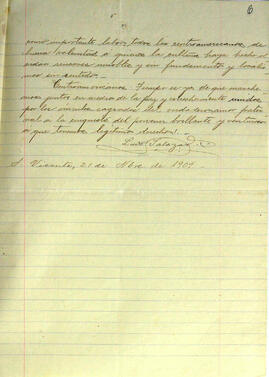 6
como importante labor, todos los centroamericanos, de
buena voluntad a quienes la cultura haya hecho el
sin fundamento y localis
mo sin sentido.
Centroamericanos: Tiempo es ya de que marche
mos juntos en medio de la paz y estrechamente unidos
por los vínculos sagrados del
del porvenir brillante y venturoso
a que tenemos legítimo derecho!
Luis Salazar
S. Vicente, 21 de Nbre de 1907